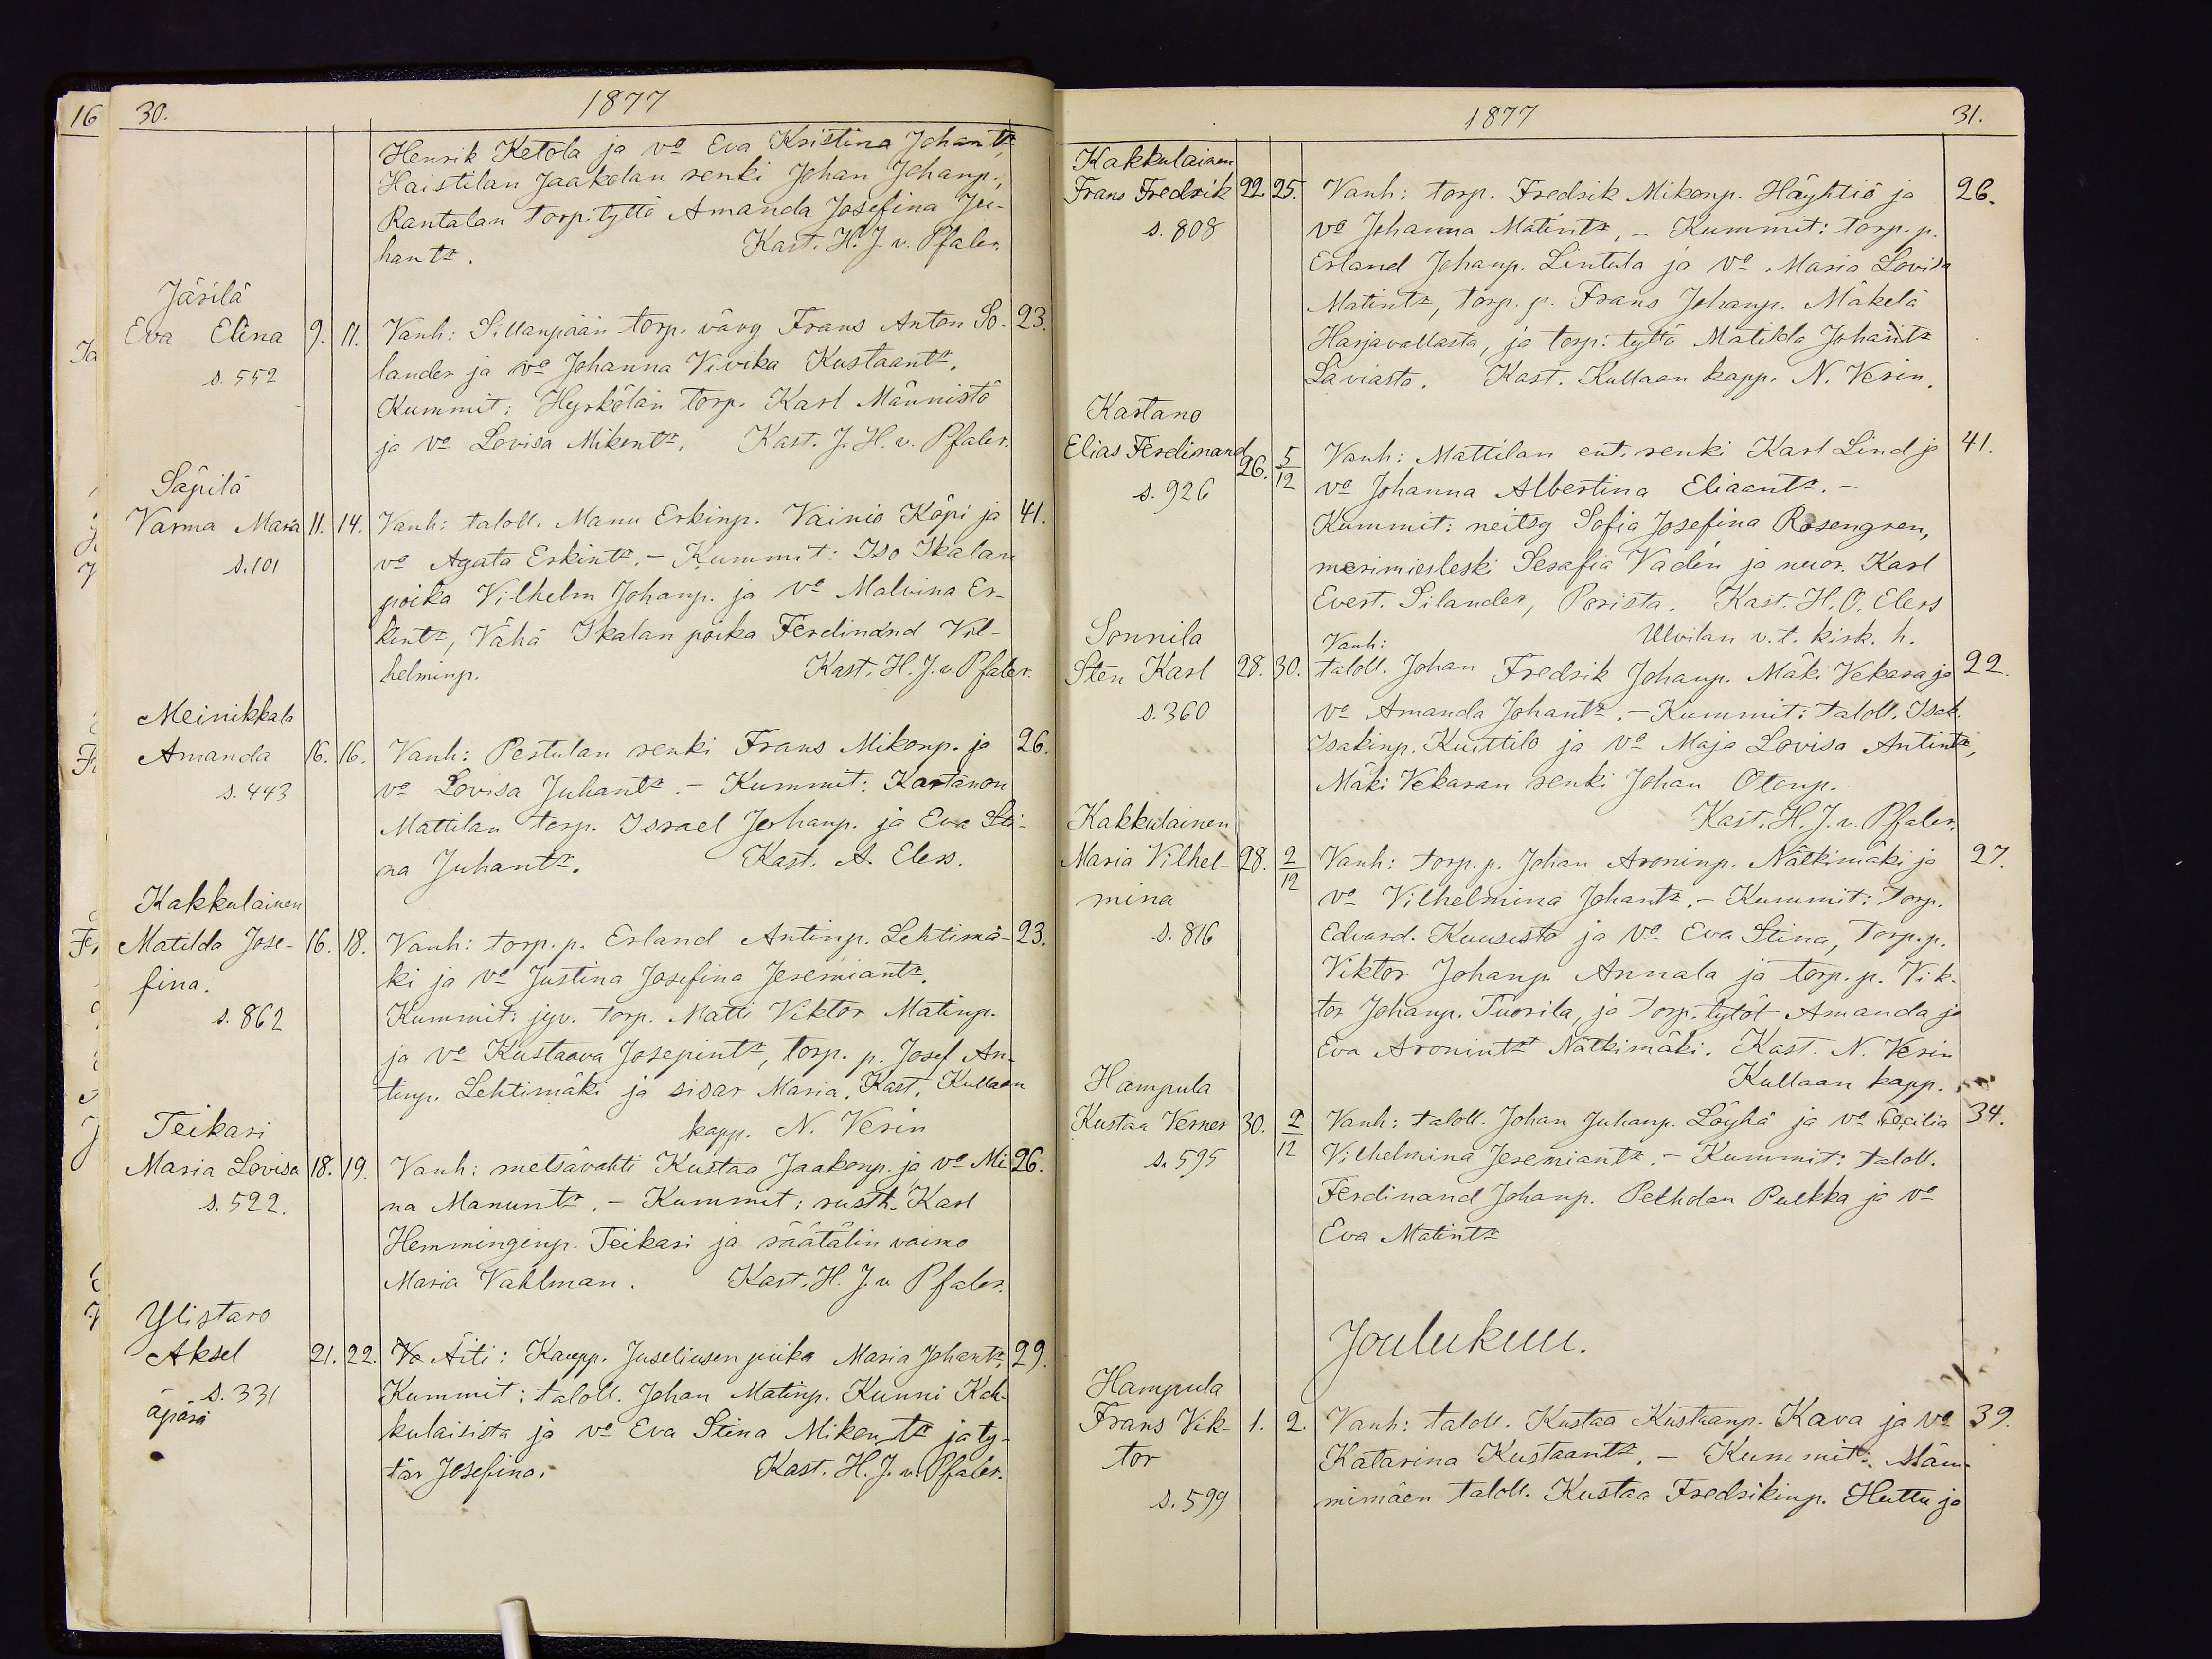 16
30.
1877
Henrik Ketola ja vo Eva Kristina Johantr
Haistilan Jaakolan renki Johan Johanp.,
Rantalan torp. tyttö Amanda Josefina Ju-
hantr. Kast. H. J. v. Pfaler.
Järilä
Eva Elina 9. 11. Vanh: Sillanpään torp. vävy Frans Anton So- 23.
s. 552 lander ja vo Johanna Vivika Kustaantr.
Kummit: Hyrkölän torp. Karl Männistö
ja vo Lovisa Mikontr. Kast. J. H. v. Pfaler.
Säpilä
Varma Maria 11. 14. Vanh: taloll. Manu Erkinp. Vainio Köpi ja 41.
s. 101 vo Agata Erkintr. – Kummit: Iso Ikalan
poika Vilhelm Johanp. ja vo Malvina Er-
kintr, Vähä Ikalan poika Ferdinand Vil-
helminp. Kast. H. J. v. Pfaler.
Meinikkala
Amanda 16. 16. Vanh: Pertulan renki Frans Mikonp. ja 26.
s. 443 vo Lovisa Juhantr. – Kummit: Kartanon
Mattilan torp. Israel Johanp. ja Eva Sti-
na Juhantr. Kast. A. Elers.
Kakkulainen
Matilda Jose- 16. 18. Vanh: torp. p. Erland Antinp. Lehtimä- 23.
fina. ki ja vo Justina Josefina Jeremiantr.
s. 862 Kummit: jyv. torp. Matti Viktor Matinp.
ja vo Kustaava Josepintr, torp. p. Josef An-
tinp. Lehtimäki ja sisar Maria. Kast. Kullaan
kapp. N. Verin
Teikari
Maria Lovisa 18. 19. Vanh: metsävahti Kustaa Jaakonp. ja vo Mi 26.
s. 522. na Manuntr. – Kummit: rusth. Karl
Hemminginp. Teikari ja räätälin vaimo
Maria Vahlman. Kast. H. J. v Pfaler.
Ylistaro
Aksel 21. 22. Äiti: Kaupp. Juseliusen piika Maria Johantr. 29.
s. 331 Kummit: taloll. Johan Matinp. Kunni Kak-
äpärä kulaisista ja vo Eva Stina Mikontr ja ty-
tär Josefina. Kast. H. J. v. Pfaler.
1877
31.
Kakkulainen
Frans Fredrik 22. 25. Vanh: torp. Fredrik Mikonp. Häyhtiö ja 26.
s. 808 vo Johanna Matintr, – Kummit: torp. p.
Erland Johanp. Lintula ja vo Maria Lovisa
Matintr, torp. p. Frans Johanp. Mäkelä
Harjavallasta, ja torp. tyttö Matilda Johantr
Laviasta. Kast. Kullaan kapp. N. Verin.
Kartano
Elias Ferdinand 26. 5/12 Vanh: Mattilan ent. renki Karl Lind ja 41.
s. 926 vo Johanna Albertina Eliaantr. –
Kummit: neitsy Sofia Josefina Rosengren,
merimiesleski Serafia Vadén ja nuor. Karl
Evert. Silander, Porista. Kast. H. O. Elers
Ulvilan v. t. kirk. h.
Sonnila
Vanh:
Sten Karl 28. 30. taloll. Johan Fredrik Johanp. Mäki Vekara ja 22.
s. 360 vo Amanda Johantr. – Kummit: taloll. Isak.
Isakinp. Kuittilo ja vo Maja Lovisa Antintr,
Mäki Vekaran renki Johan Otonp.
Kast. H. J. v. Pfaler.
Kakkulainen
Maria Vilhel- 28. 2/12 Vanh: torp. p. Johan Aroninp. Nätkimäki ja 27.
mina vo Vilhelmina Johantr. – Kummit: torp.
s. 816 Edvard. Kuusisto ja vo Eva Stina, torp. p.
Viktor Johanp. Annala ja torp. p. Vik-
tor Johanp. Tuorila, ja torp. tytöt Amanda ja
Eva Aronintrt Nätkimäki. Kast. N. Verin
Kullaan kapp.
Hampula
Kustaa Verner 30. 2/12 Vanh: taloll. Johan Juhanp. Löyhä ja vo Cecilia 34.
s. 595 Vilhelmina Jeremiantr. – Kummit: taloll.
Ferdinand Johanp. Pelholan Pulkka ja vo
Eva Matintr
Joulukuu.
Hampula
Frans Vik- 1. 2. Vanh: taloll. Kustaa Kustaanp. Kava ja vo 39.
tor Katarina Kustaantr. – Kummit: Mäm-
s. 599 mimäen taloll. Kustaa Fredrikinp. Huttu ja